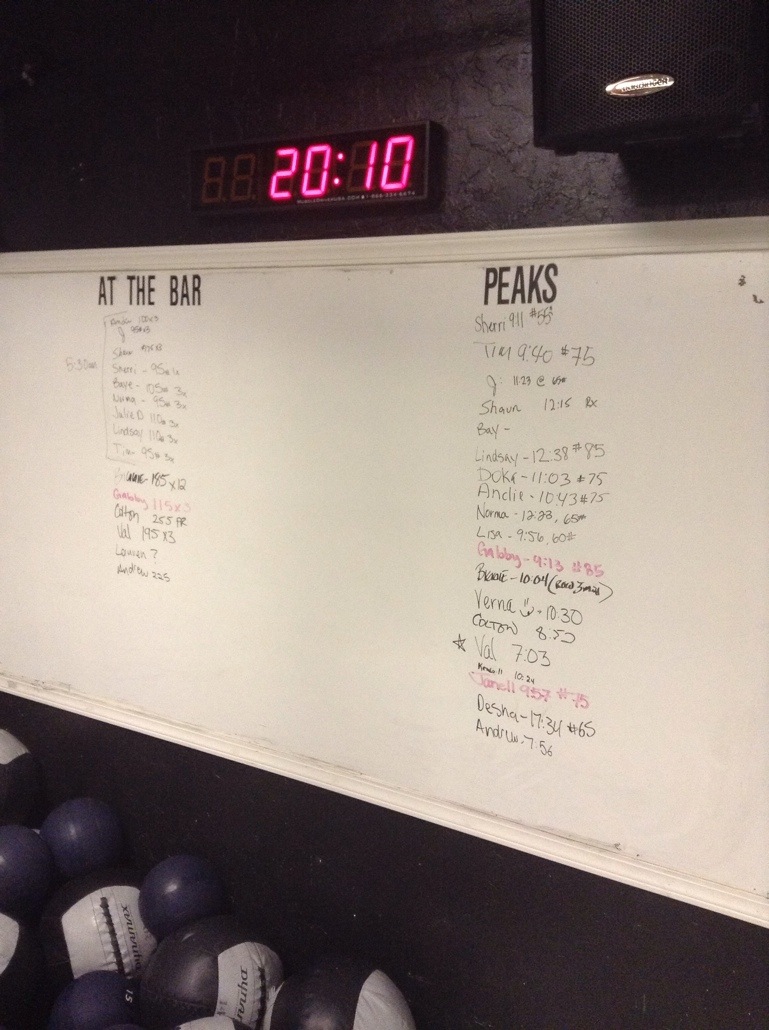 20:10
AT THE BAR
Andie 100x3
J 95#x3
Shaun
Sherri - 95#
Baye - 105# 3x
Norma - 95# 3x
Julie D 110# 3x
Lindsay 110# 3x
Tim 95# 3x
8:30am
185 x12
Gabby 115x3
Colton 255 PR
Val 195 x3
Lauren ?
Andrew 225
PEAKS
Sherri 911 #55
Tim 9:40 #75
J: 11:23 @ 65#
Shaun 12:15 Rx
Bay -
Lindsay - 12:38 #85
Doka - 11:03 #75
Andie - 10:43 #75
Norma - 12:23, 65#
Lisa - 9:56, 60#
Gabby - 9:13 #85
10:04
Verna - 10:30
Colton 8:50
Val 7:03
10:24
Janell 9:57 #75
Desha - 17:34 #65
Andrew - 7:56
Dynamax
15
Dynamax